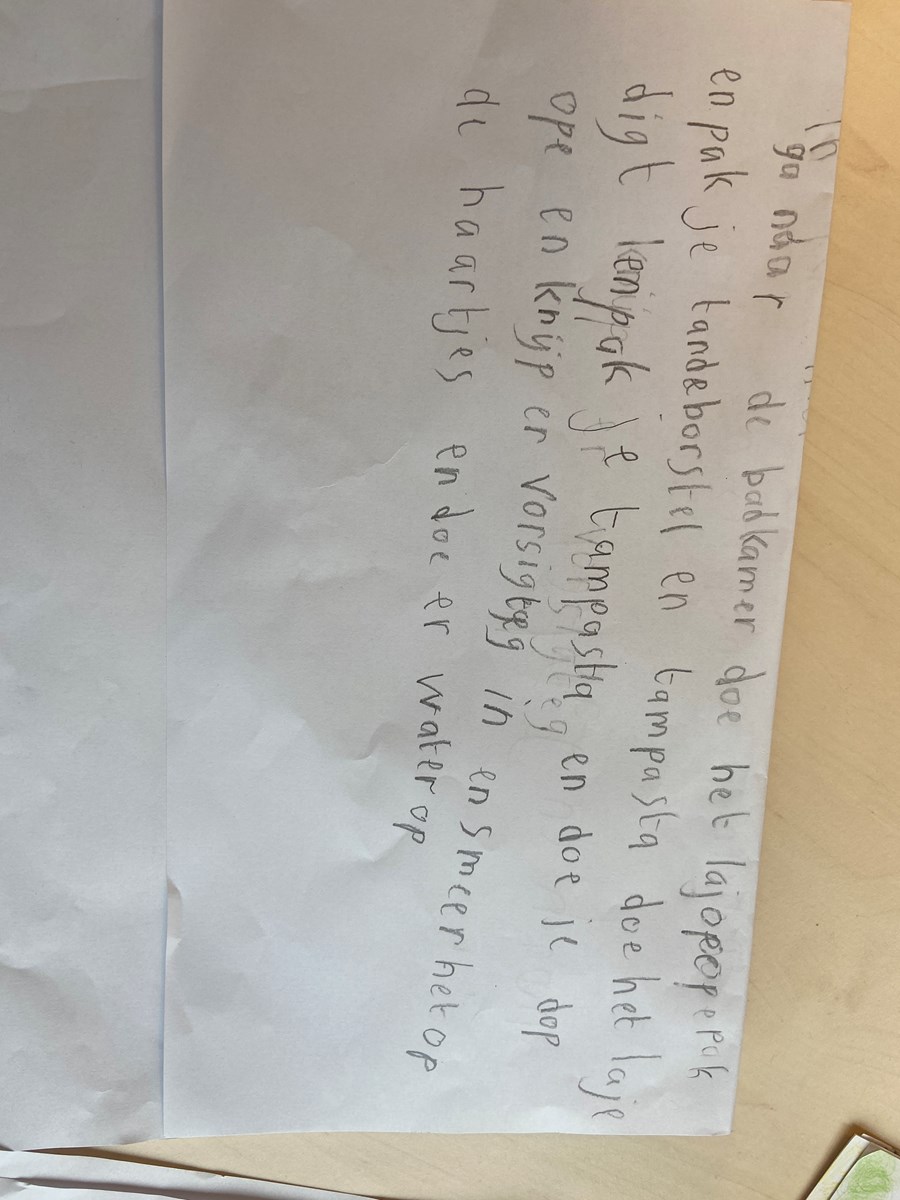 ga naar de badkamer doe het lajopeope pak
en pak je tandeborstel en tampasta doe het laje
digt en pak je tampasta en doe je dop
ope en knijp er vorsigteg in en smeer het op
de haartjes en doe er water op